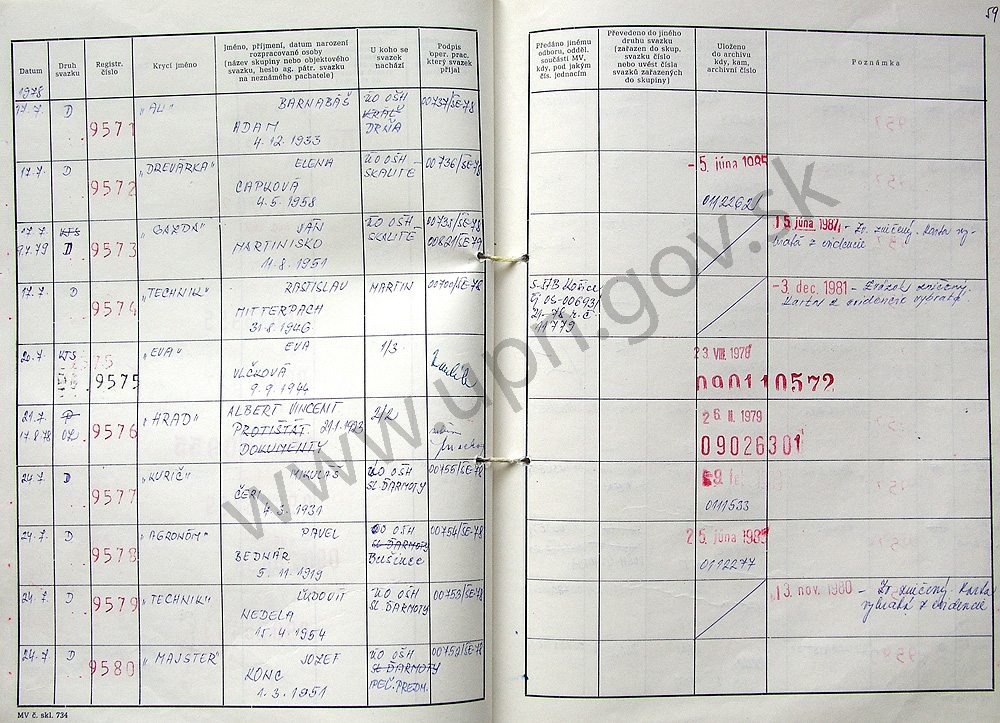 59
Datum
Druh svazku
Registr. číslo
Krycí jméno
Jméno, příjmení, datum narození rozpracované osoby (název skupiny nebo objektového svazku, heslo ag. pátr. svazku na neznámého pachatele)
U koho se svazek nachází
Podpis oper. prac. který svazek přijal
Předáno jinému odboru, odděl. součásti MV, kdy, pod jakým čís. jednacím
Převedeno do jiného druhu svazku (zařazen do skup. svazku číslo nebo uvést čísla svazků zařazených do skupiny)
Uloženo do archivu kdy, kam, archivní číslo
Poznámka
1978
17.7. D 9571 "ALI" BARNABÁŠ ÚO OŠH 00737/ŠE-78
ADAM KRÁĽ
4.12.1933 DRŇA
17.7. D 9572 "DREVÁRKA" ELENA ÚO OŠH - SKALITÉ 00736/ŠE-78 -5. júna 1985
CAPKOVÁ
4.5.1958 0112262
17.7. KTS 9573 "GAZDA" JÁN ÚO OŠH - SKALITÉ 00735/ŠE-78 15. júna 1987 - Zv. zničený. Karta vy-
9.7.79 D MARTINISKO 00821/ŠE-79 bratá z evidencie
11.8.1951
17.7. D 9574 "TECHNIK" RASTISLAV MARTIN 00700/ŠE-78 S-ŠtB Košice -3. dec. 1981 - Zväzok zničený.
MITTERPACH Karta z evidencie vybratá
31.8.1946 11779
20.7. KTS 9575 "EVA" EVA 1/3 23 VIII. 1978
VLČKOVÁ 090110572
9.9.1944
21.7. D 9576 "HRAD" ALBERT VINCENT 2/2 26. II. 1979
17.8.78 PROTIŠTÁT 21.1.1923 09026301
DOKUMENTY
24.7. D 9577 "KURIČ" MIKULÁŠ ÚO OŠH 00755/ŠE-78
ČERI SL. ĎARMOTY
4.1931 0111533
24.7. D 9578 "AGRONÓM" PAVEL OO OŠH 00754/ŠE-78 25. júna 1985
BEDNÁR SL. ĎARMOTY
5.11.1919 Bušince 0112277
24.7. D 9579 "TECHNIK" ĽUDOVÍT ÚO OŠH 00753/ŠE-78 13. nov. 1980 - Zv. zničený. Karta
NEDELA SL. ĎARMOTY vybratá z evidencie
15.4.1954
24.7. D 9580 "MAJSTER" JOZEF ÚO OŠH 00752/ŠE-78
KONC SL. ĎARMOTY
1.3.1951 PEČ. PREDM.
MV č. skl. 734
www.upn.gov.sk